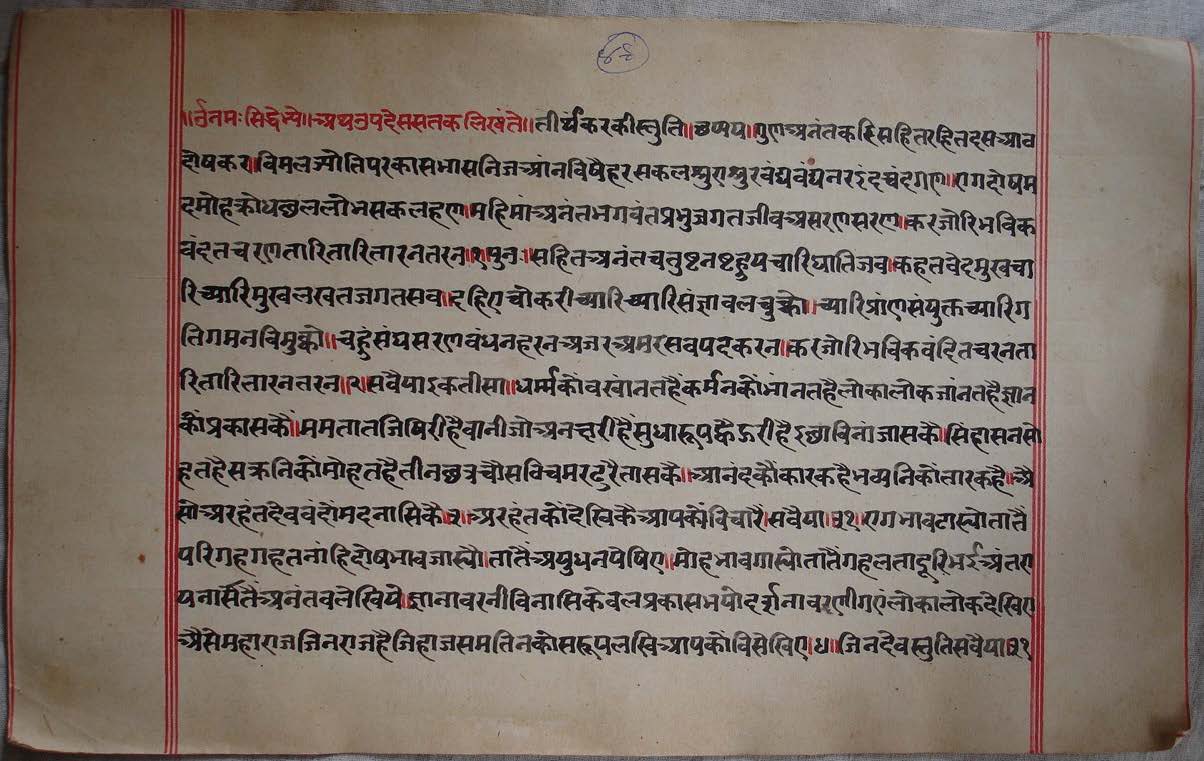 ॥ॐनमःसिद्धेभ्ये॥अथउपदेससतकलिख्यंते॥तीर्थंकरकीस्तुति॥छप्पय॥गुणअनंतकरिसहितरहितदसआव
दोषकर॥विमलज्योतिपरकासभासनिजआंनविषैहरसकलसुरासुरवंद्यवंद्यनरइंदचंदगण॥रागदोषम
दमोहक्रोधछललोभसकलहण॥महिमांअनंतभगवंतप्रभुजगतजीवअसरणसरण॥करजोरिभविक
वंदतचरणतारितारितारनतरन॥१॥पुनः॥सहितअनंतचतुष्टनष्टहुयचारिघातिजव॥कहतवेदमुखचा
रिच्यारिमुखलखतजगतसव॥दहिएचोकरीच्यारिच्यारिसंज्ञावलचुक्को॥च्यारिप्रांणसंयुक्तच्यारिग
तिगमनविमुक्को॥चहुंसंघसरणवंधनहरनअजरअमरसवपदकरन॥करजोरिभविकवंदितचरनता
रितारितारनतरन॥२॥सवैयाइकतीसा॥धर्म्मकौंवखांनतहैंकर्मनकौंभांनतहैलोकालोकजांनतहैज्ञान
कौंप्रकासकौं॥ममतातजिषिरीहैवानीजोअनच्छरीहैंसुधारूपव्हैऊरीहैइछाविनांजासकौ॥सिंहासनसो
हतहैसक्रनिकौंमोहतहैतीनछत्रचौसविचमरढुरैतासकै॥आनंदकौंकारकहैभव्यनिकौतारकहै॥अै
सोअरहंतदेववंदौंमदनासिकै॥३॥अरहंतकौंदेखिकैआपकौंविचारै॥सवैया॥३१॥रागभावटास्यौतातैं
परिगहगहतनांहिदोषभावजास्यौ॥तातैंअयुधनपेषिए॥मोहभावगास्योतातैंगहलतादूरिभईअंतरा
यनासैतैंअनंतवलेखिये॥ज्ञानावरनीविनासिकेवलप्रकासभयोदर्सनावरणीगएंलोकालोकदेखिए
अैसेमहाराजजिनराजहैजिहाजसमतिनकोसरूपलखिआपकौविसेखिए॥४॥जिनदेवस्तुतिसवैया॥३१